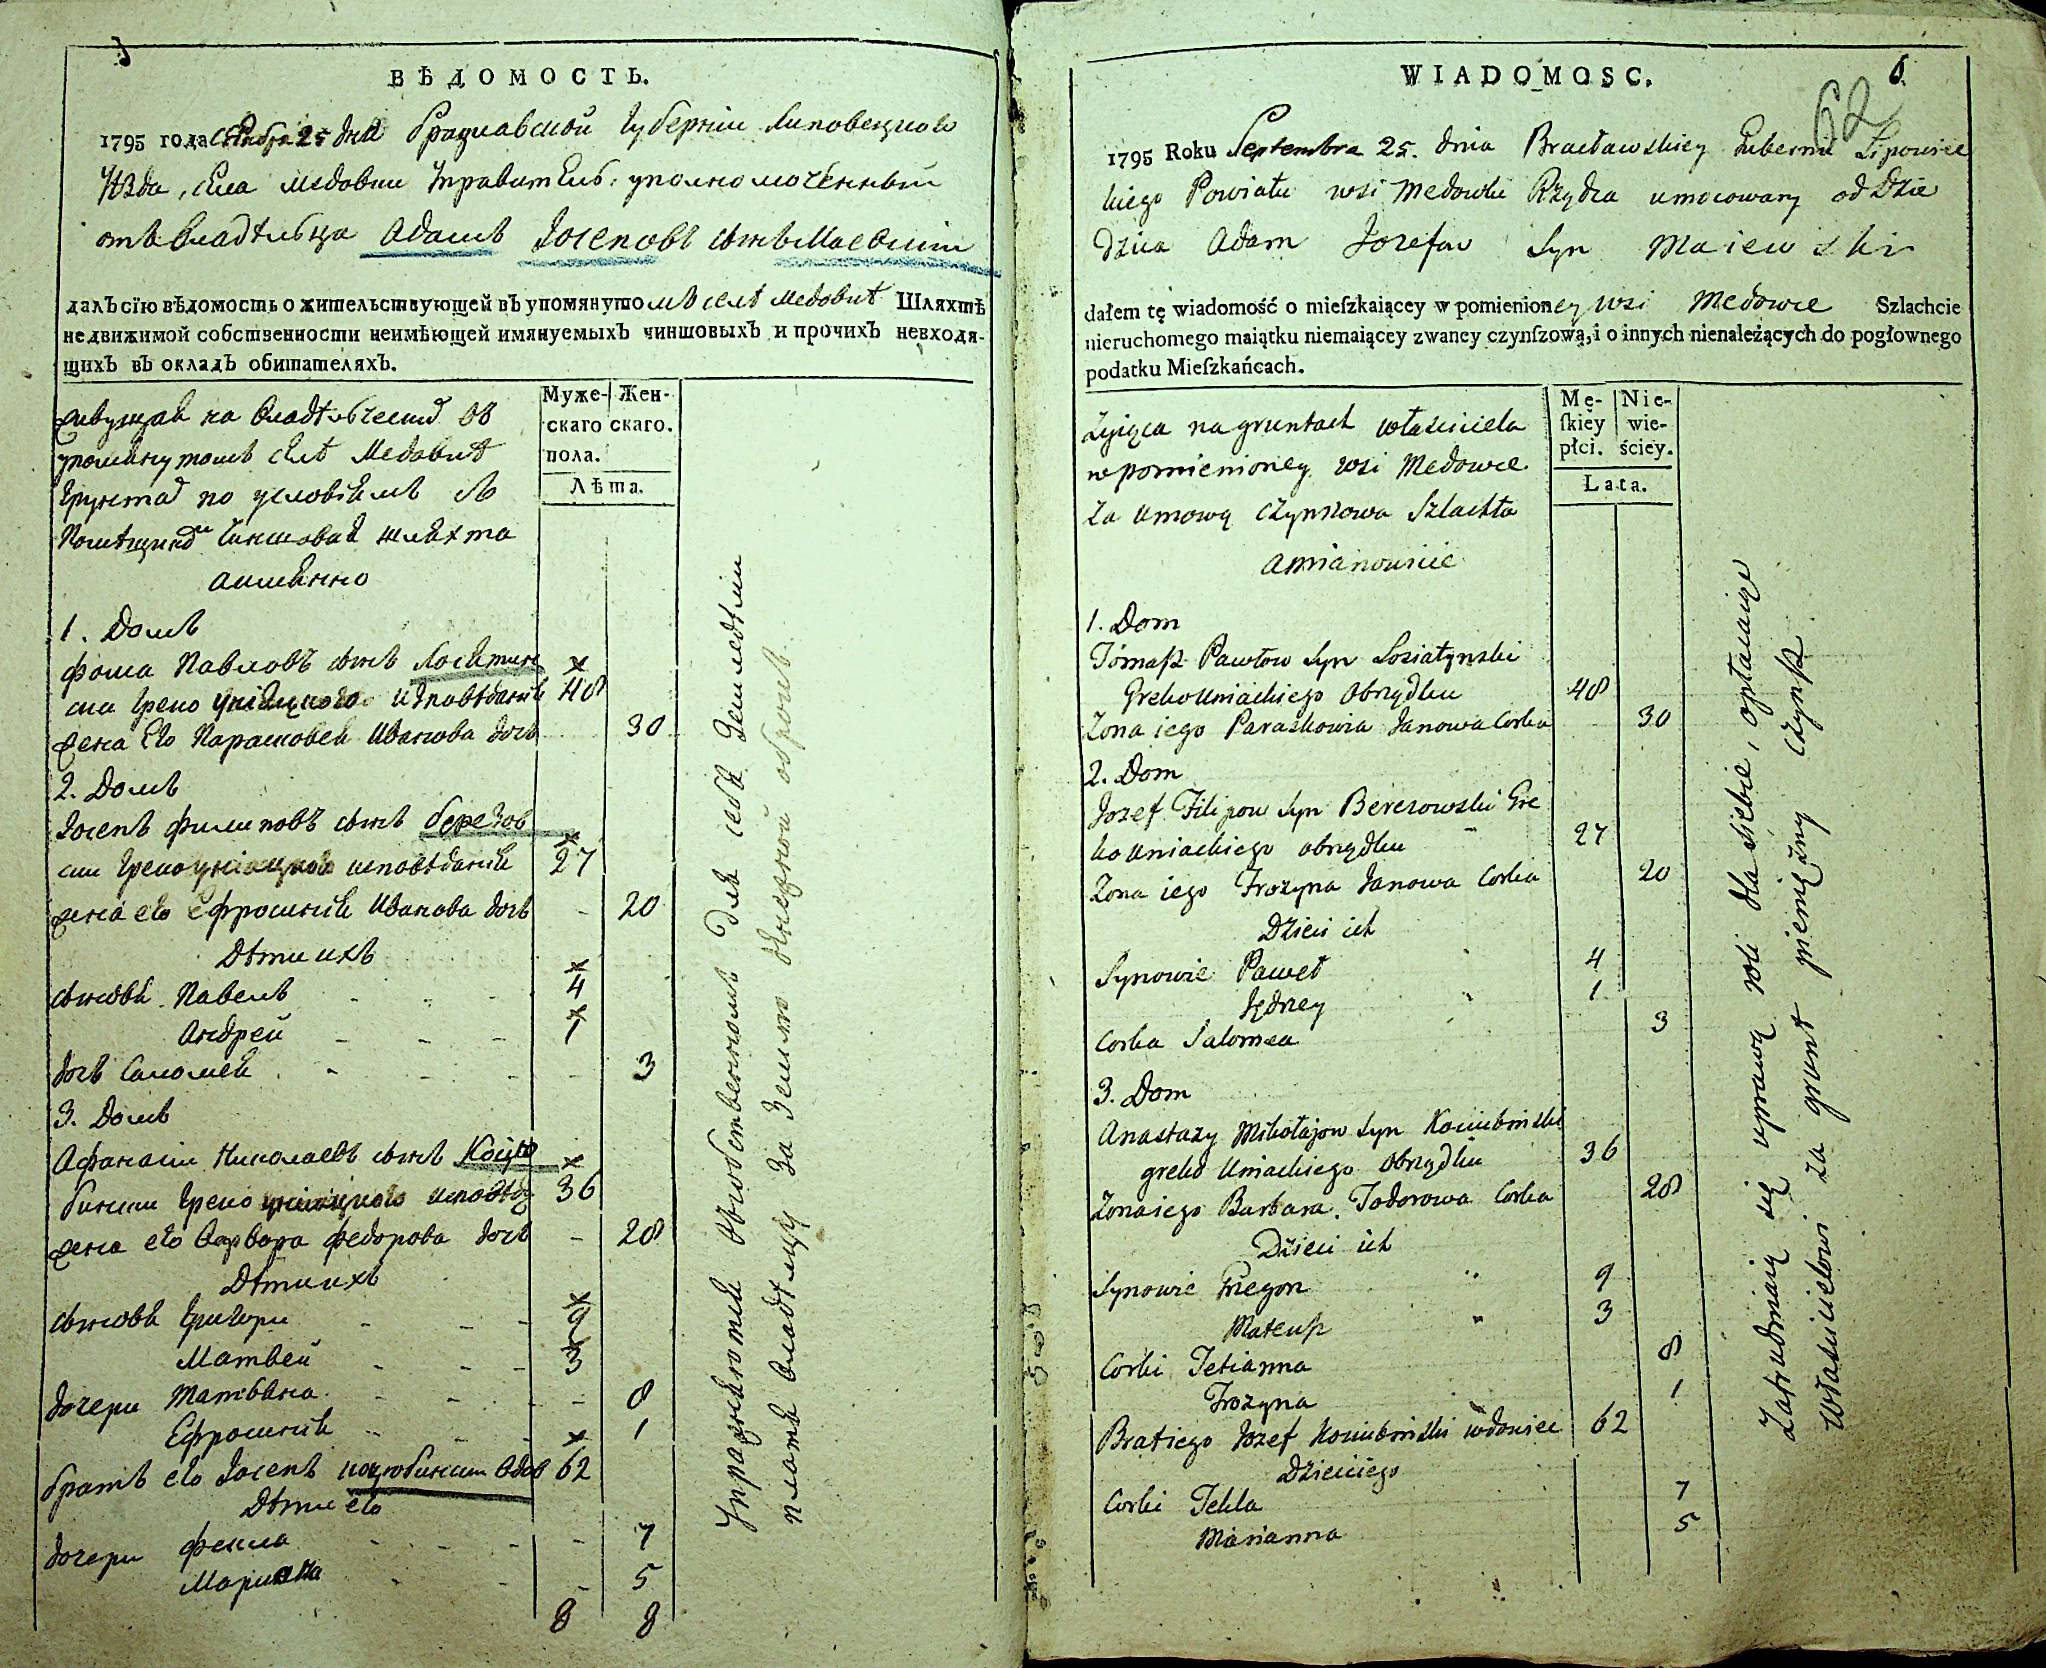 ВѢДОМОСТЬ.
1795 года Сентября 25 дня Брацлавской Губернїи Липовецкаго
Уѣзда, села Медовки Управитель уполномоченный
отъ владѣльца Адамъ Іосеповъ сынъ Маевскїй
далъ сїю вѣдомость о жительствующей въ упомянутомъ селѣ Медовкѣ Шляхтѣ
недвижимой собственности неимѣющей имянуемыхъ чиншовыхъ и прочихъ невходя-
щихъ въ окладъ обитателяхъ.
Муже- Жен-
скаго скаго.
пола.
Лѣта.
живущая на владѣльческихъ въ
упомянутомъ селѣ Медовкѣ
грунтахъ по условїямъ съ
Помѣщикомъ чиншовая шляхта
а имянно
1. Домъ
Фома Павловъ сынъ Лосятин
ски греко унїацкого исповѣданїя 48
жена его Парасковея Иванова дочь 30
2. Домъ
Іосепъ Филиповъ сынъ Березов
ски греко унїацкого исповѣданїя 27
жена его Ефросинїя Иванова дочь - 20
Дѣти ихъ
сыновья Павелъ 4
Андрей 1
дочь Саломея 3
3. Домъ
Афанасїи Николаевъ сынъ Коцю
бински греко унїацкого исповѣд 36
жена его Варвара Федорова дочь - 28
Дѣти ихъ
сыновья Григори 9
Матвей 3
дочери Татьяна 8
Ефросинїя 1
братъ его Іосепъ Коцюбински вдов 62
Дѣти его
дочери Фекла 7
Марияна 5
8 8
Упражняются въ собственномъ для себя земледѣлїи
платя владѣлцу за землю денежной оброкъ
WIADOMOSC.
6
62
1795 Roku Septembra 25. dnia Bracławskiey Gubernii Lipowiec
kiego Powiatu wsi Medowki Rządca umocowany od Dzie
dzica Adam Jozefow Syn Maiewski
dałem tę wiadomość o mieſzkaiącey w pomienioney wsi Medowce Szlachcie
nieruchomego maiątku niemaiącey zwaney czynſzową, i o innych nienależących do pogłownego
podatku Mieſzkańcach.
Mę- Nie-
ſkiey wie-
płci. ściey.
Lata.
Zyiąca na gruntach właściciela
w pomienioney wsi Medowce
za umową czynszowa Szlachta
a mianowicie
1. Dom
Tomasz Pawłow Syn Łosiatynski
Greko Uniackiego Obrządku 48
Zona iego Paraskowia Janowa Corka 30
2. Dom
Jozef Filipow Syn Berezowski Gre
ko uniackiego obrządku 27
Zona iego Frozyna Janowa Corka 20
Dzieci ich
Synowie Paweł 4
Jędrzey 1
Corka Salomea 3
3. Dom
Anastazy Mikołajow Syn Kociubinski
greko Uniackiego Obrządku 36
Zona iego Barbara Todorowa Corka 28
Dzieci ich
Synowie Gregor 9
Mateusz 3
Corki Tetianna 8
Frozyna 1
Brat iego Jozef Kociubinski wdowiec 62
Dzieci iego
Corki Tekla 7
Marianna 5
Zatrudniaią się uprawą roli dla siebie, opłacaiąc
Właścicielowi za grunt pieniężny czynsz